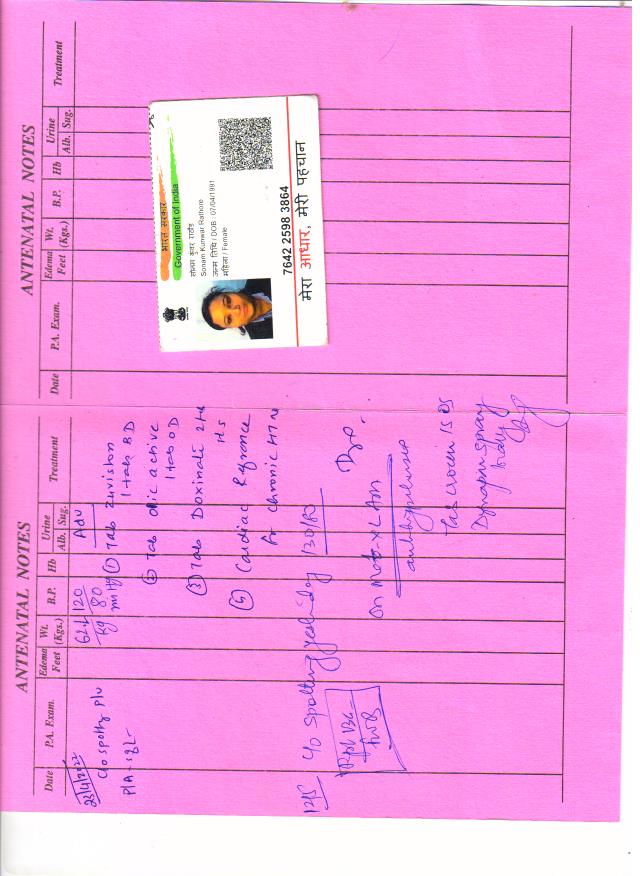 ANTENATAL NOTES
Date P.A. Exam. Edema Feet Wt. (Kgs.) B.P. Hb Urine Alb. Sug. Treatment
23/4/2022 62.2 kg 120/80 mmHg Adv
c/o spotting P/V
P/A - 
① Tab
1 tab BD
② Tab active
1 tab OD
③ Tab Doxinate 2 tab
HS
④ Cardiac Reference
for chronic HTN
12/5 c/o spotting yesterday 130/80
on
antihypertensive
Tab Crocin SOS
Dynapar Spray
ANTENATAL NOTES
Date P.A. Exam. Edema Feet Wt. (Kgs.) B.P. Hb Urine Alb. Sug. Treatment
भारत सरकार
Government of India
सोनम कुंवर राठौड़
Sonam Kunwar Rathore
जन्म तिथि / DOB : 07/04/1991
महिला / Female
7642 2598 3864
मेरा आधार, मेरी पहचान